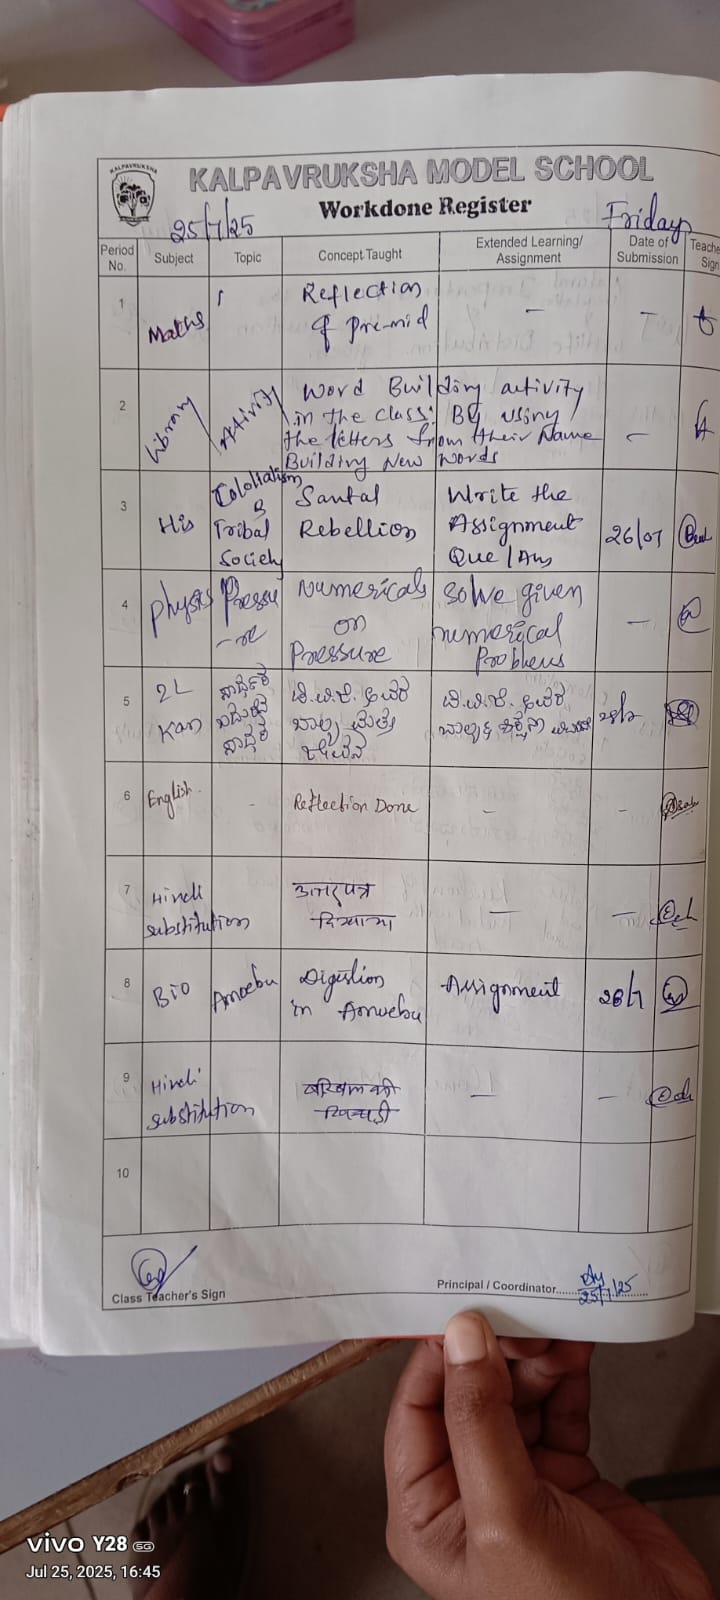 KALPAVRUKSHA
KALPAVRUKSHA MODEL SCHOOL
Workdone Register
25/7/25
Friday
Period No. Subject Topic Concept Taught Extended Learning/ Assignment Date of Submission Teache Sign
1 Maths Reflection of Pre-mid –
2 Library Activity Word Building activity
in the class: By using
the letters from their Name –
Building New Words
3 His & Tribal Society Santal Rebellion Write the Assignment Que/Ans 26/07
4 Physis Pressu-re Numericals on Pressure Solve given numerical Problems –
5 2L Kan
6 English. - Reflection Done – –
7 Hindi substitution उत्तरपत्र – –
8 BIO Amoeba Digestion in Amoeba Assignment 28/7
9 Hindi substitution – –
10
Class Teacher's Sign
Principal / Coordinator 25/7/25
vivo Y28 5G
Jul 25, 2025, 16:45